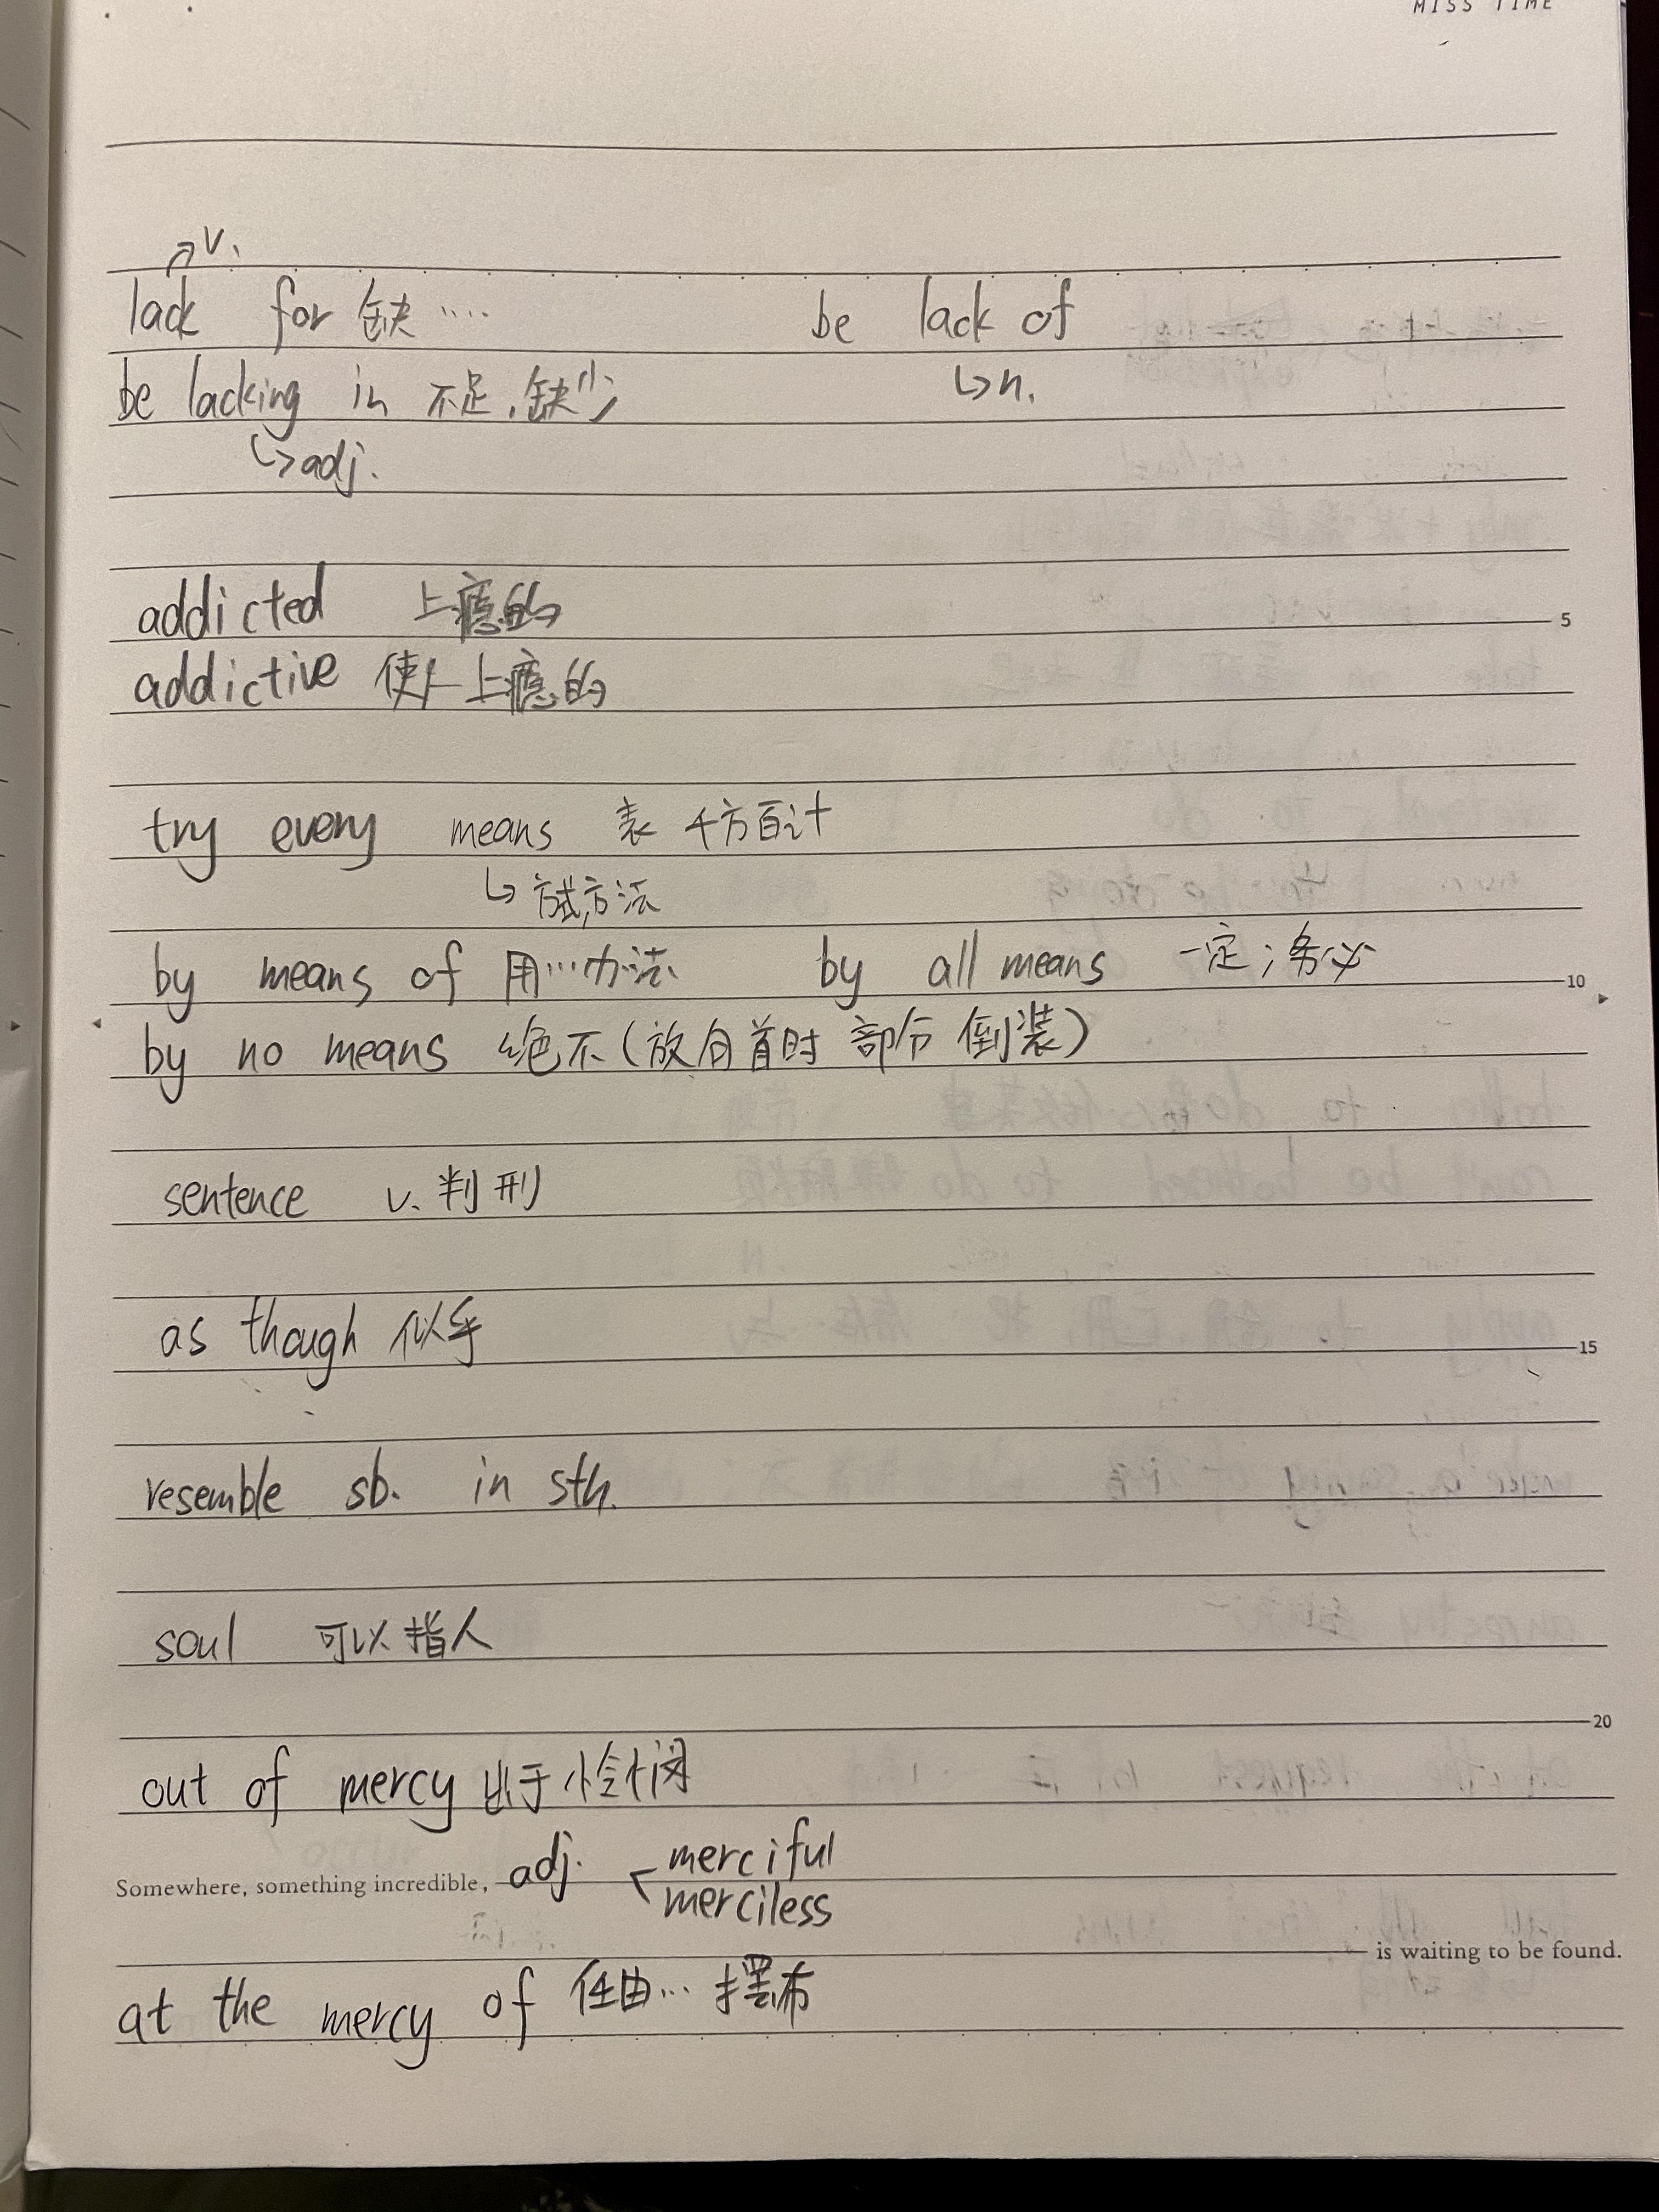 MISS TIME
v.
lack for 缺…. be lack of
be lacking in 不足,缺少 ↳n.
↳adj.
addicted 上瘾的
addictive 使人上瘾的
5
try every means 表 千方百计
↳试,方法
by means of 用…方法 by all means 一定;务必
10
by no means 绝不(放句首时 部分倒装)
sentence v. 判刑
as though 似乎
15
resemble sb. in sth.
soul 可以指人
out of mercy 出于怜悯
20
merciful
Somewhere, something incredible, adj. < mercless
is waiting to be found.
at the mercy of 任由… 摆布